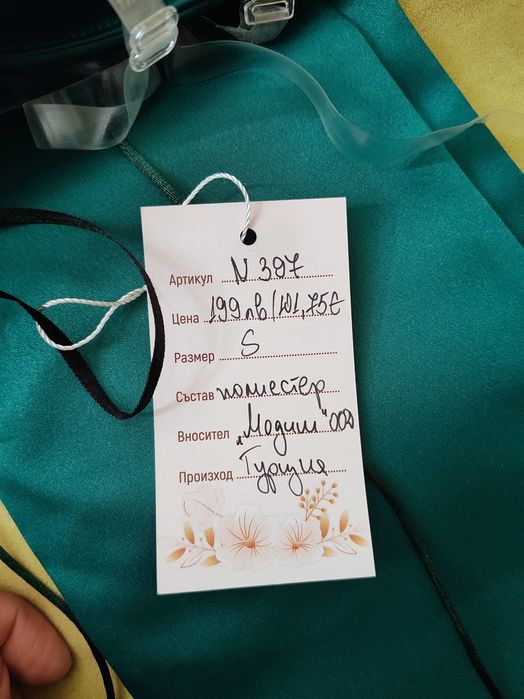 Артикул N 397
Цена 199лв/101,75€
Размер S
Състав полиестер
Вносител „Модиш" ООД
Произход Турция